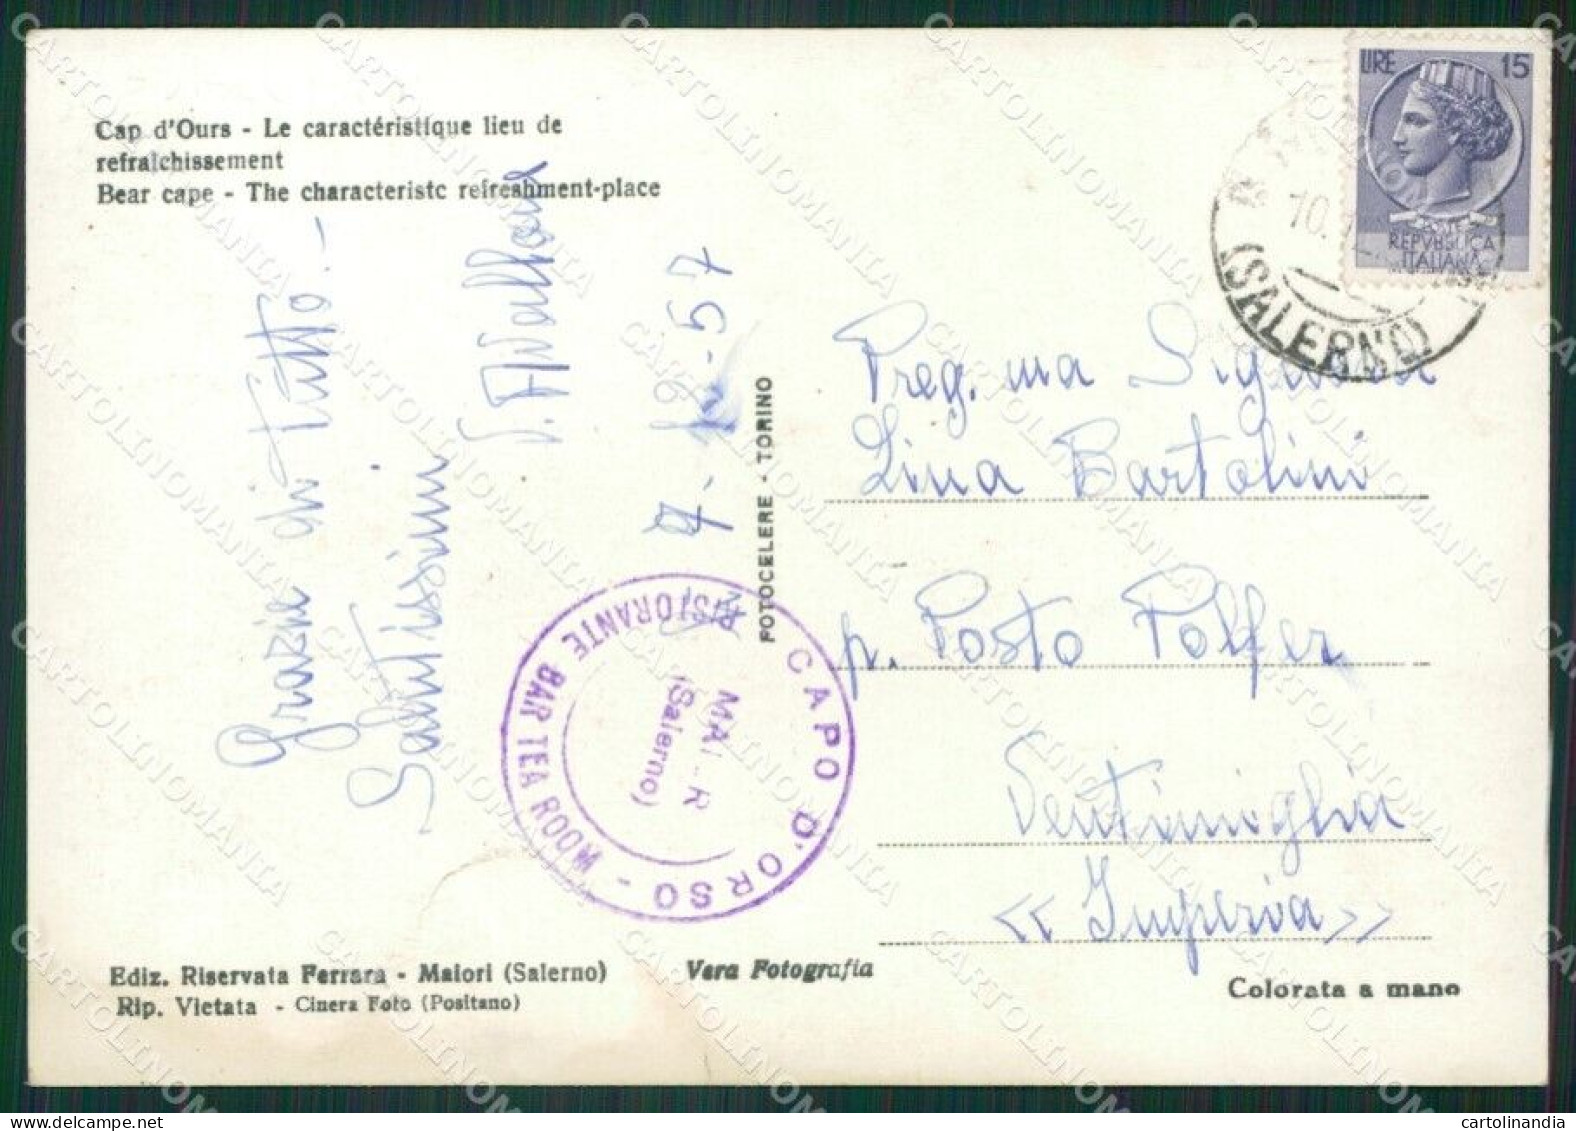 Cap d'Ours - Le caractéristique lieu de
refraichissement
Bear cape - The characteristc refreshment-place
LIRE 15
POSTE
REPVBBLICA
ITALIANA
10.
(SALERNO)
Grazie di tutto. -
Salutissimi
7-12-57
FOTOCELERE - TORINO
Preg.ma Signora
Lina Bartolini
p. Posto Polfer
Ventimiglia
<< Imperia >>
CAPO D'ORSO - RISTORANTE BAR TEA ROOM -
(Salerno)
Ediz. Riservata Ferrara - Maiori (Salerno)
Rip. Vietata - Cinera Foto (Positano)
Vera Fotografia
Colorata a mano
CARTOLINOMANIA
cartolinandia